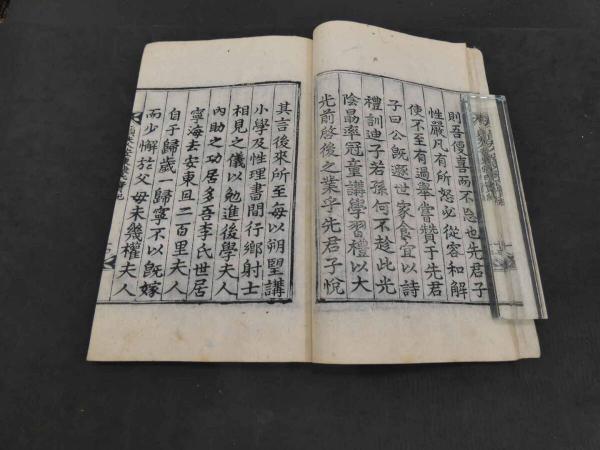 則吾儕喜而不忘也先君子
性嚴凡有所怒必從容和解
使不至有過擧嘗贊于先君
子曰公旣遯世家食宜以詩
禮訓迪子若孫何不趁此光
陰勗率冠童講學習禮以大
光前啓後之業乎先君子悅
其言後來所至每以朔望講
小學及性理書間行鄕射士
相見之儀以勉進後學夫人
內助之功居多吾李氏世居
寧海去安東且二百里夫人
自于歸歲一歸寧不以旣嫁
而少懈於父母未幾權夫人